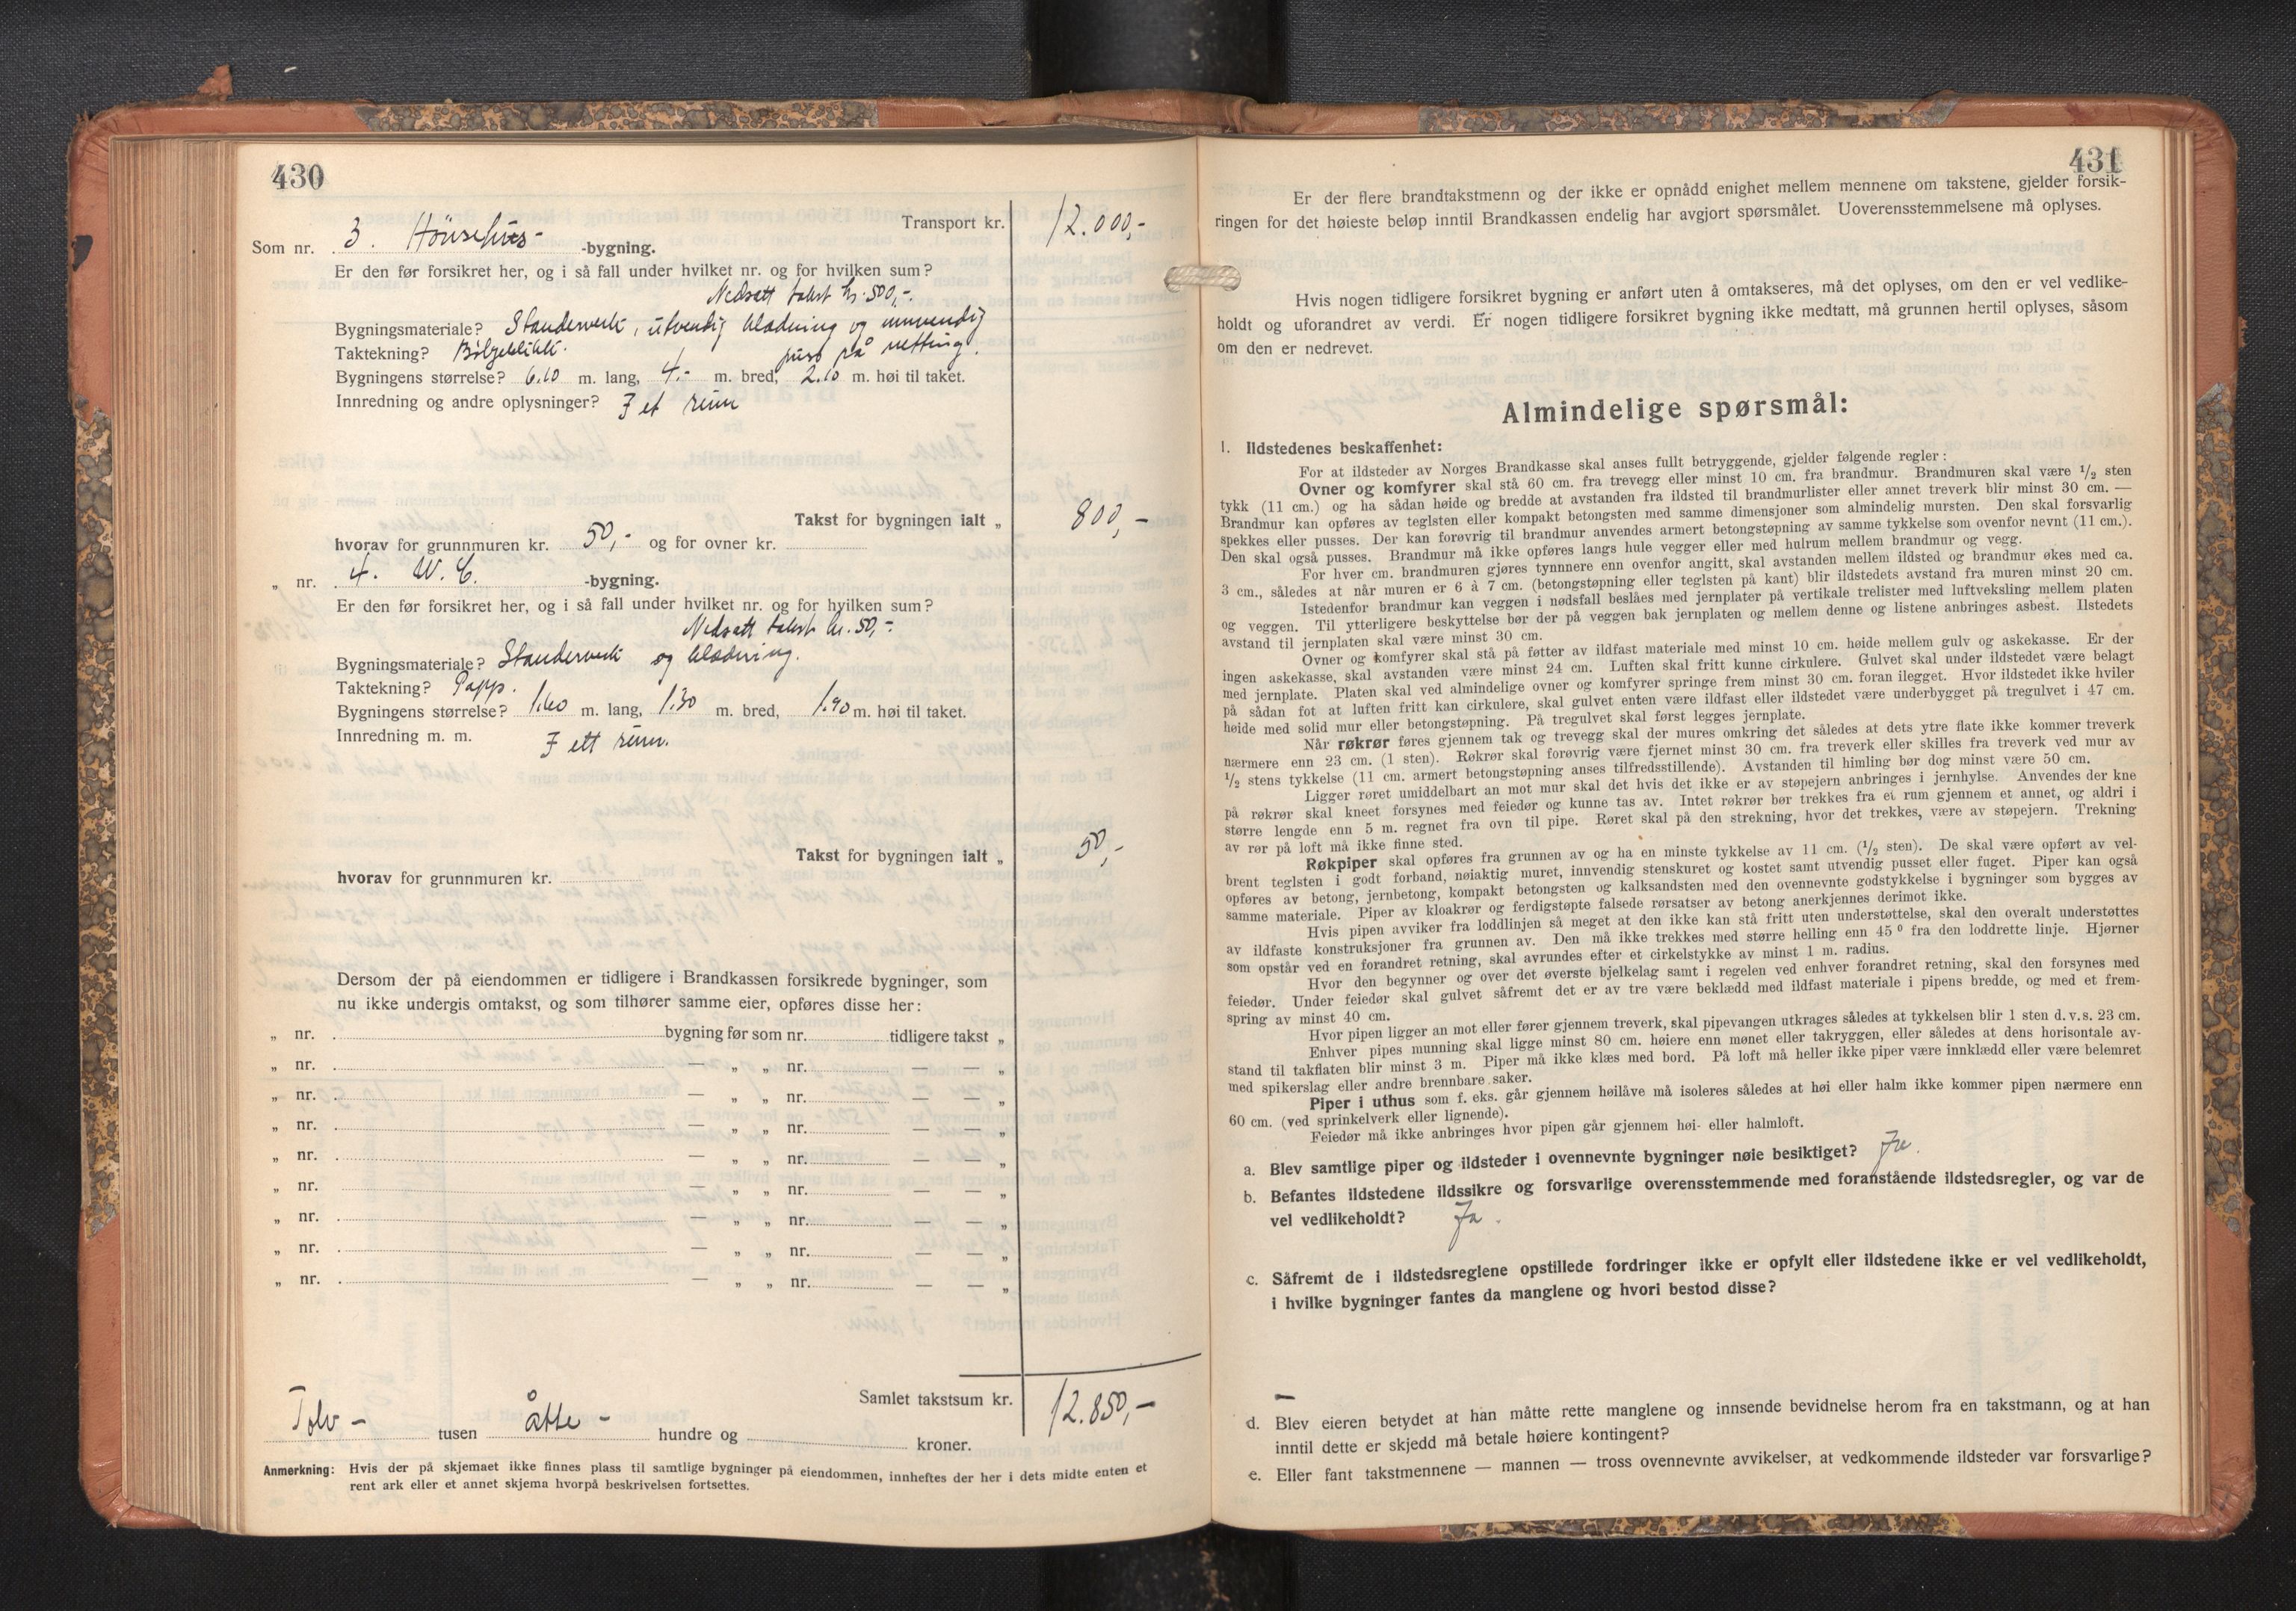 430
Transport kr. 12.000,-
Som nr. 3. Hönsehus- -bygning.
Er den før forsikret her, og i så fall under hvilket nr. og for hvilken sum?
Nedsatt takst kr. 500,-.
Bygningsmateriale? Standerverk, utvendig klædning og innvendig
Taktekning? Bölgeblikk. puss på netting.
Bygningens størrelse? 6.10 m. lang, 4.- m. bred, 2.10 m. høi til taket.
Innredning og andre oplysninger? I et rum
Takst for bygningen ialt „ 800,-
hvorav for grunnmuren kr. 50,- og for ovner kr.
„ nr. 4. W.C. -bygning.
Er den før forsikret her, og i så fall under hvilket nr. og for hvilken sum?
Nedsatt takst kr. 50,-.
Bygningsmateriale? Standerverk og klædning.
Taktekning? Papp.
Bygningens størrelse? 1.60 m. lang, 1.30 m. bred, 1.90 m. høi til taket.
Innredning m. m. I ett rum.
Takst for bygningen ialt „ 50,-
hvorav for grunnmuren kr.
Dersom der på eiendommen er tidligere i Brandkassen forsikrede bygninger, som
nu ikke undergis omtakst, og som tilhører samme eier, opføres disse her:
„ nr. bygning før som nr. tidligere takst „
„ nr. — „ „ nr. — — „
„ nr. — „ „ nr. — — „
„ nr. — „ „ nr. — — „
„ nr. — „ „ nr. — — „
„ nr. — „ „ nr. — — „
„ nr. — „ „ nr. — — „
„ nr. — „ „ nr. — — „
„ nr. — „ „ nr. — — „
Samlet takstsum kr. 12.850,-
Tolv - tusen åtte - hundre og kroner.
Anmerkning: Hvis der på skjemaet ikke finnes plass til samtlige bygninger på eiendommen, innheftes der her i dets midte enten et
rent ark eller et annet skjema hvorpå beskrivelsen fortsettes.
431
Er der flere brandtakstmenn og der ikke er opnådd enighet mellem mennene om takstene, gjelder forsik-
ringen for det høieste beløp inntil Brandkassen endelig har avgjort spørsmålet. Uoverensstemmelsene må oplyses.
Hvis nogen tidligere forsikret bygning er anført uten å omtakseres, må det oplyses, om den er vel vedlike-
holdt og uforandret av verdi. Er nogen tidligere forsikret bygning ikke medtatt, må grunnen hertil oplyses, såsom
om den er nedrevet.
Almindelige spørsmål:
1. Ildstedenes beskaffenhet:
For at ildsteder av Norges Brandkasse skal anses fullt betryggende, gjelder følgende regler:
Ovner og komfyrer skal stå 60 cm. fra trevegg eller minst 10 cm. fra brandmur. Brandmuren skal være 1/2 sten
tykk (11 cm.) og ha sådan høide og bredde at avstanden fra ildsted til brandmurlister eller annet treverk blir minst 30 cm. —
Brandmur kan opføres av teglsten eller kompakt betongsten med samme dimensjoner som almindelig mursten. Den skal forsvarlig
spekkes eller pusses. Der kan forøvrig til brandmur anvendes armert betongstøpning av samme tykkelse som ovenfor nevnt (11 cm.).
Den skal også pusses. Brandmur må ikke opføres langs hule vegger eller med hulrum mellem brandmur og vegg.
For hver cm. brandmuren gjøres tynnnere enn ovenfor angitt, skal avstanden mellem ildsted og brandmur økes med ca.
3 cm., således at når muren er 6 à 7 cm. (betongstøpning eller teglsten på kant) blir ildstedets avstand fra muren minst 20 cm.
Istedenfor brandmur kan veggen i nødsfall beslåes med jernplater på vertikale trelister med luftveksling mellem platen
og veggen. Til ytterligere beskyttelse bør der på veggen bak jernplaten og mellem denne og listene anbringes asbest. Ilstedets
avstand til jernplaten skal være minst 30 cm.
Ovner og komfyrer skal stå på føtter av ildfast materiale med minst 10 cm. høide mellem gulv og askekasse. Er der
ingen askekasse, skal avstanden være minst 24 cm. Luften skal fritt kunne cirkulere. Gulvet skal under ildstedet være belagt
med jernplate. Platen skal ved almindelige ovner og komfyrer springe frem minst 30 cm. foran ilegget. Hvor ildstedet ikke hviler
på sådan fot at luften fritt kan cirkulere, skal gulvet enten være ildfast eller ildstedet være underbygget på tregulvet i 47 cm.
høide med solid mur eller betongstøpning. På tregulvet skal først legges jernplate.
Når røkrør føres gjennem tak og trevegg skal der mures omkring det således at dets ytre flate ikke kommer treverk
nærmere enn 23 cm. (1 sten). Røkrør skal forøvrig være fjernet minst 30 cm. fra treverk eller skilles fra treverk ved mur av
1/2 stens tykkelse (11 cm. armert betongstøpning anses tilfredsstillende). Avstanden til himling bør dog minst være 50 cm.
Ligger røret umiddelbart an mot mur skal det hvis det ikke er av støpejern anbringes i jernhylse. Anvendes der kne
på røkrør skal kneet forsynes med feiedør og kunne tas av. Intet røkrør bør trekkes fra et rum gjennem et annet, og aldri i
større lengde enn 5 m. regnet fra ovn til pipe. Røret skal på den strekning, hvor det trekkes, være av støpejern. Trekning
av rør på loft må ikke finne sted.
Røkpiper skal opføres fra grunnen av og ha en minste tykkelse av 11 cm. (1/2 sten). De skal være opført av vel-
brent teglsten i godt forband, nøiaktig muret, innvendig stenskuret og kostet samt utvendig pusset eller fuget. Piper kan også
opføres av betong, jernbetong, kompakt betongsten og kalksandsten med den ovennevnte godstykkelse i bygninger som bygges av
samme materiale. Piper av kloakrør og ferdigstøpte falsede rørsatser av betong anerkjennes derimot ikke.
Hvis pipen avviker fra loddlinjen så meget at den ikke kan stå fritt uten understøttelse, skal den overalt understøttes
av ildfaste konstruksjoner fra grunnen av. Den må ikke trekkes med større helling enn 45 ° fra den loddrette linje. Hjørner
som opstår ved en forandret retning, skal avrundes efter et cirkelstykke av minst 1 m. radius.
Hvor den begynner og over det øverste bjelkelag samt i regelen ved enhver forandret retning, skal den forsynes med
feiedør. Under feiedør skal gulvet såfremt det er av tre være beklædd med ildfast materiale i pipens bredde, og med et frem-
spring av minst 40 cm.
Hvor pipen ligger an mot eller fører gjennem treverk, skal pipevangen utkrages således at tykkelsen blir 1 sten d.v.s. 23 cm.
Enhver pipes munning skal ligge minst 80 cm. høiere enn mønet eller takryggen, eller således at dens horisontale av-
stand til takflaten blir minst 3 m. Piper må ikke klæs med bord. På loft må heller ikke piper være innklædd eller være belemret
med spikerslag eller andre brennbare saker.
Piper i uthus som f. eks. går gjennem heilåve må isoleres således at høi eller halm ikke kommer pipen nærmere enn
60 cm. (ved sprinkelverk eller lignende).
Feiedør må ikke anbringes hvor pipen går gjennem høi- eller halmloft.
a. Blev samtlige piper og ildsteder i ovennevnte bygninger nøie besiktiget? Ja.
b. Befantes ildstedene ildssikre og forsvarlige overensstemmende med foranstående ildstedsregler, og var de
vel vedlikeholdt? Ja.
c. Såfremt de i ildstedsreglene opstillede fordringer ikke er opfylt eller ildstedene ikke er vel vedlikeholdt,
i hvilke bygninger fantes da manglene og hvori bestod disse?
—
d. Blev eieren betydet at han måtte rette manglene og innsende bevidnelse herom fra en takstmann, og at han
inntil dette er skjedd må betale høiere kontingent?
e. Eller fant takstmennene — mannen — tross ovennevnte avvikelser, at vedkommende ildsteder var forsvarlige?